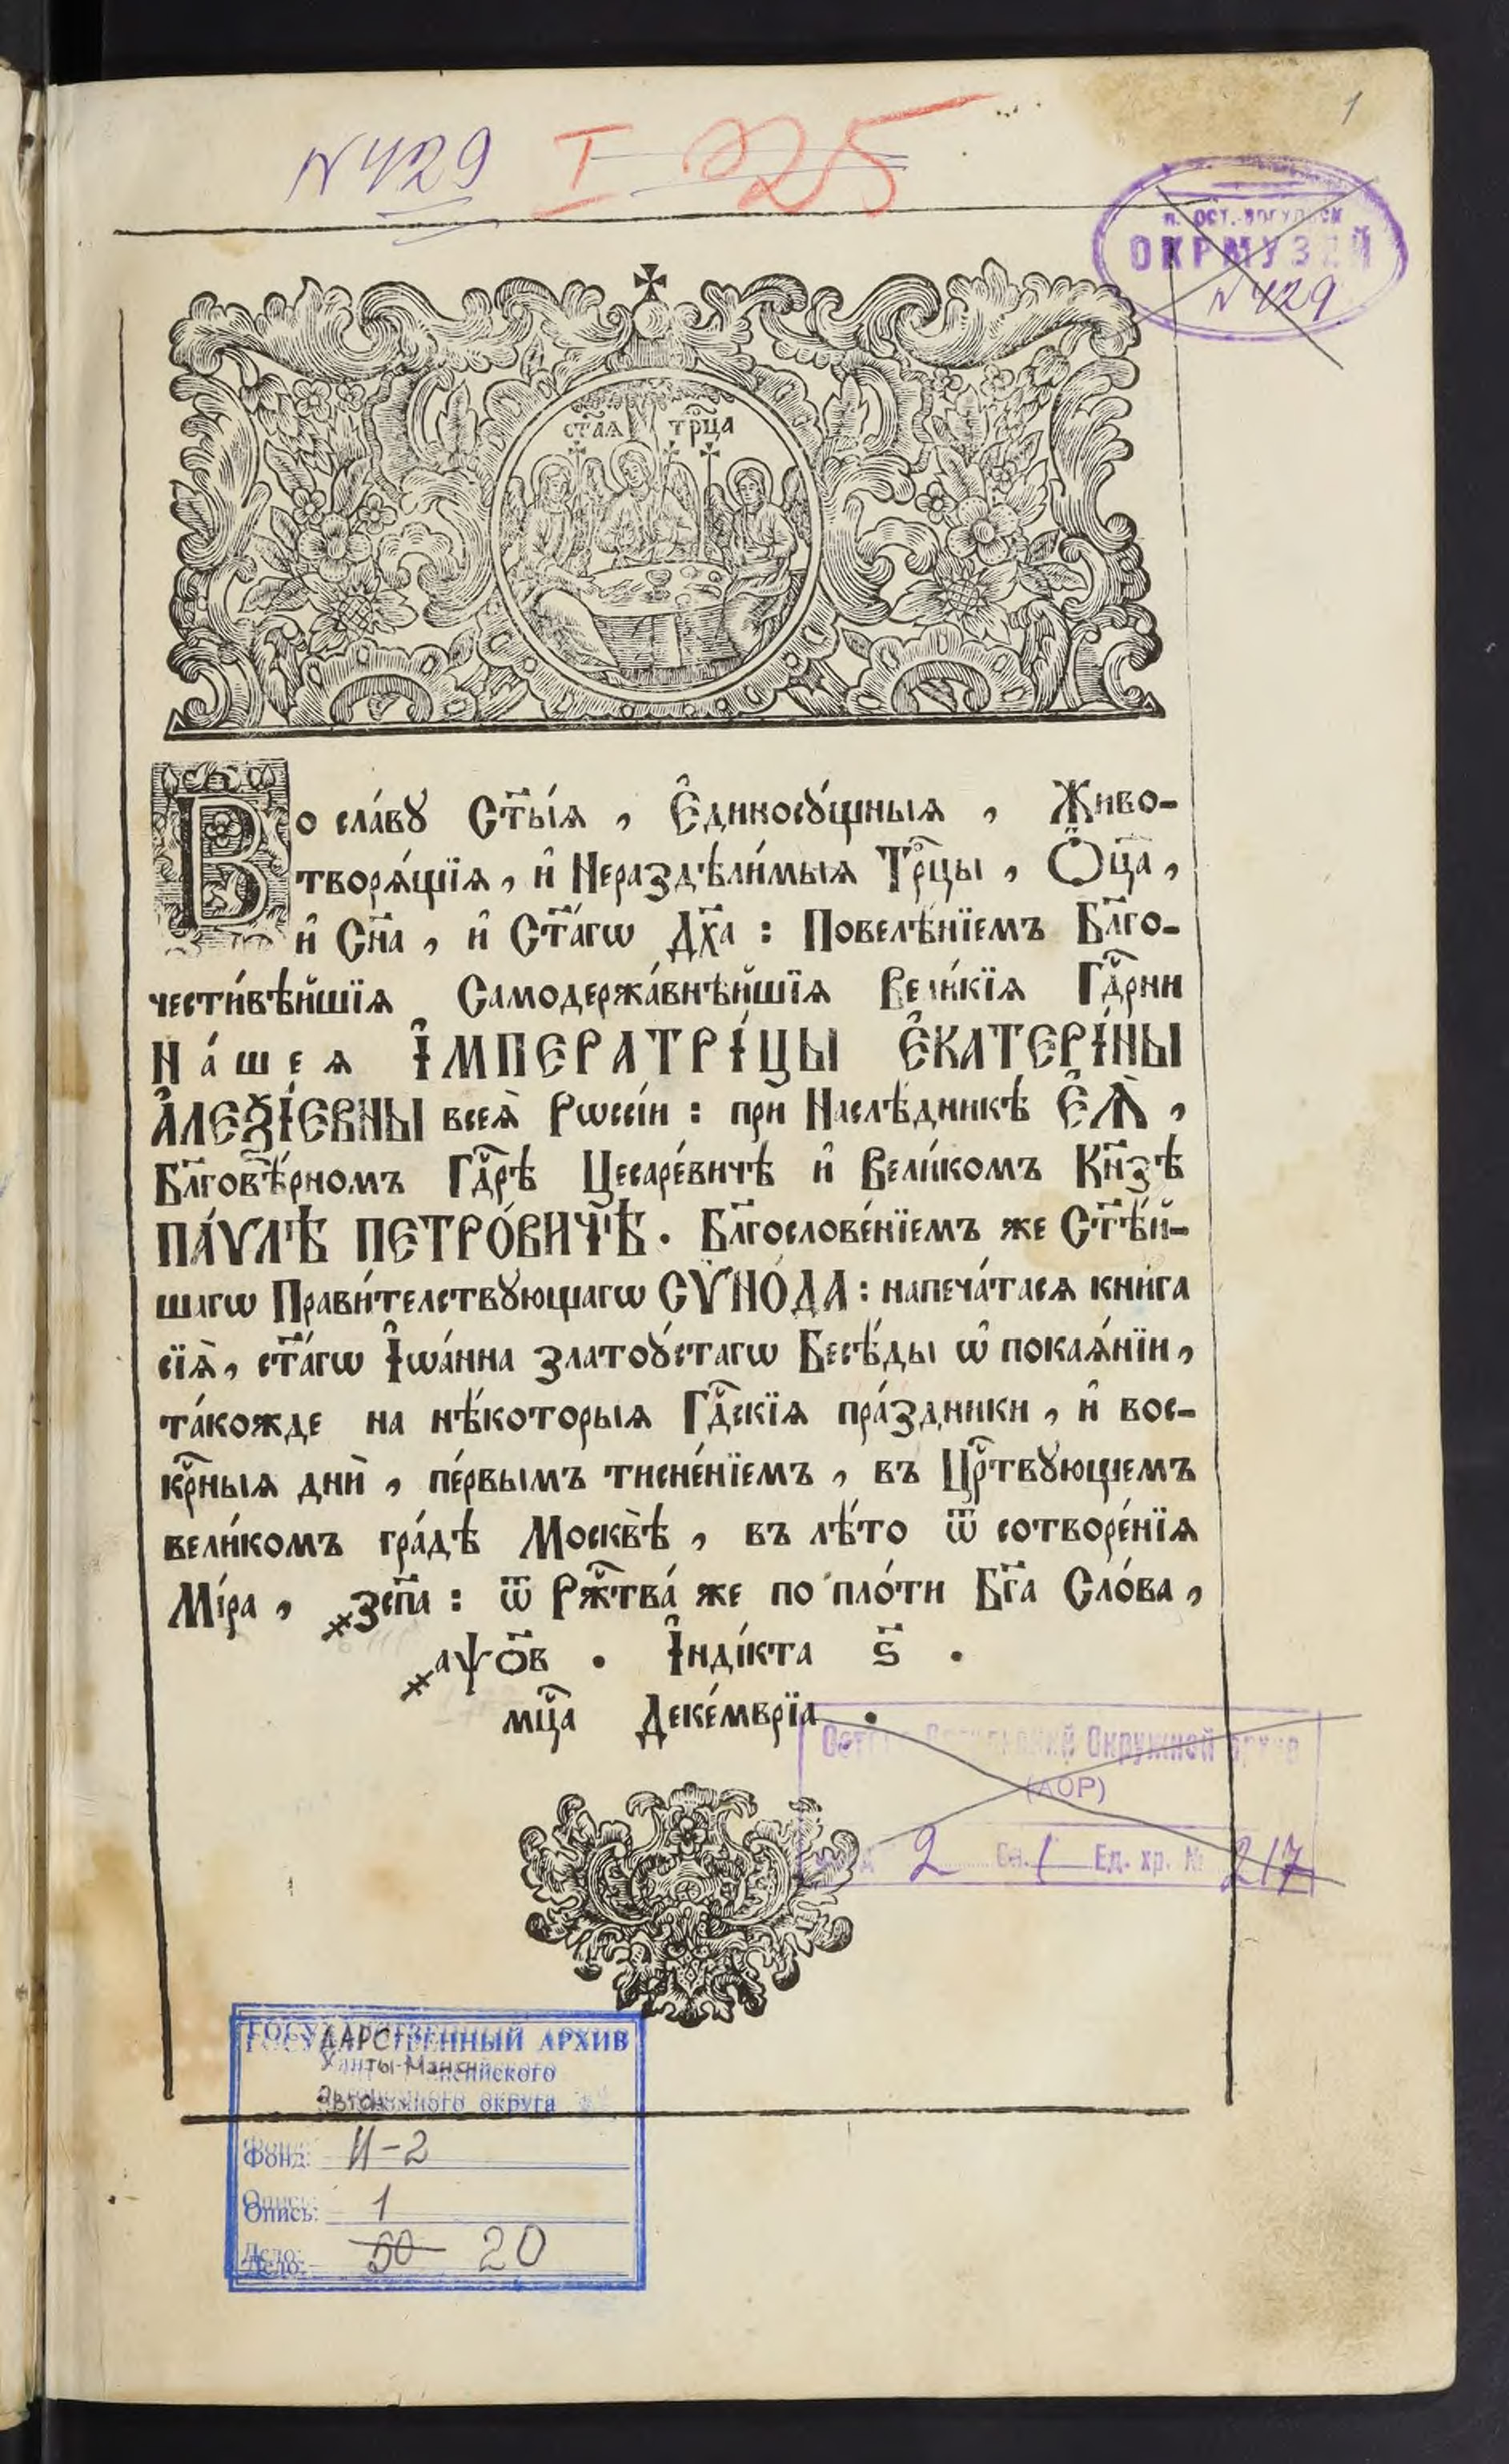 1
N 429 I 25
п. ОСТ.-ВОГУЛЬСК
ОКРМУЗЕЙ
N 429
ст҃ая трⷪ҇ца
Во сла́вꙋ Ст҃ы́ѧ , Є҆диносꙋ́щныѧ , Живо-
творѧ́щїѧ , и҆ Нераздѣли́мыѧ Трⷪ҇цы , Ѻ҆ц҃а̀ ,
и҆ Сн҃а , и҆ Ст҃а́гѡ Дх҃а : Повелѣ́нїемъ Бл҃го-
чести́вѣйшїѧ Самодержа́внѣйшїѧ Вели́кїѧ Гдⷭ҇рни
На́шеѧ І҆МПЕРАТРІ́ЦЫ Є҆КАТЕРІ́НЫ
А҆ЛЕѮІ́ЕВНЫ всеѧ̀ Рѡссі́и : при Наслѣ́дникѣ Є҆Ѧ̀ ,
Бл҃говѣ́рномъ Гдⷭ҇рѣ Цесаре́вичѣ и҆ Вели́комъ Кн҃зѣ
ПА́ѴЛѢ ПЕТРО́ВИЧѢ . Бл҃гослове́нїемъ же Ст҃ѣ́й-
шагѡ Прави́телствꙋющагѡ СѴНО́ДА : напеча́тасѧ книга
сїѧ̀ , ст҃а́гѡ І҆ѡа́нна златоꙋ́стагѡ Бесѣ́ды ѡ҆ покаѧ́нїи ,
та́кожде на нѣ́которыѧ Гдⷭ҇скїѧ пра́здники , и҆ вос-
крⷭ҇ныѧ дни̑ , пе́рвымъ тисне́нїемъ , въ Црⷭ҇твꙋющемъ
вели́комъ гра́дѣ Москвѣ̀ , въ лѣ́то ѿ сотворе́нїѧ
Мі́ра , ҂зсп҃а : ѿ Ржⷭ҇тва́ же по пло́ти Бг҃а Сло́ва ,
҂аѱѻ҃в . І҆ндї́кта ѕ҃ .
мцⷭ҇а Деке́мврїа .
Окружной архив
(АОР)
2 Оп. 1 Ед. хр. № 217
ГОСУДАРСТВЕННЫЙ АРХИВ
Ханты-Мансийского
автономного округа
Фонд: И-2
Опись: 1
Дело: 50 20